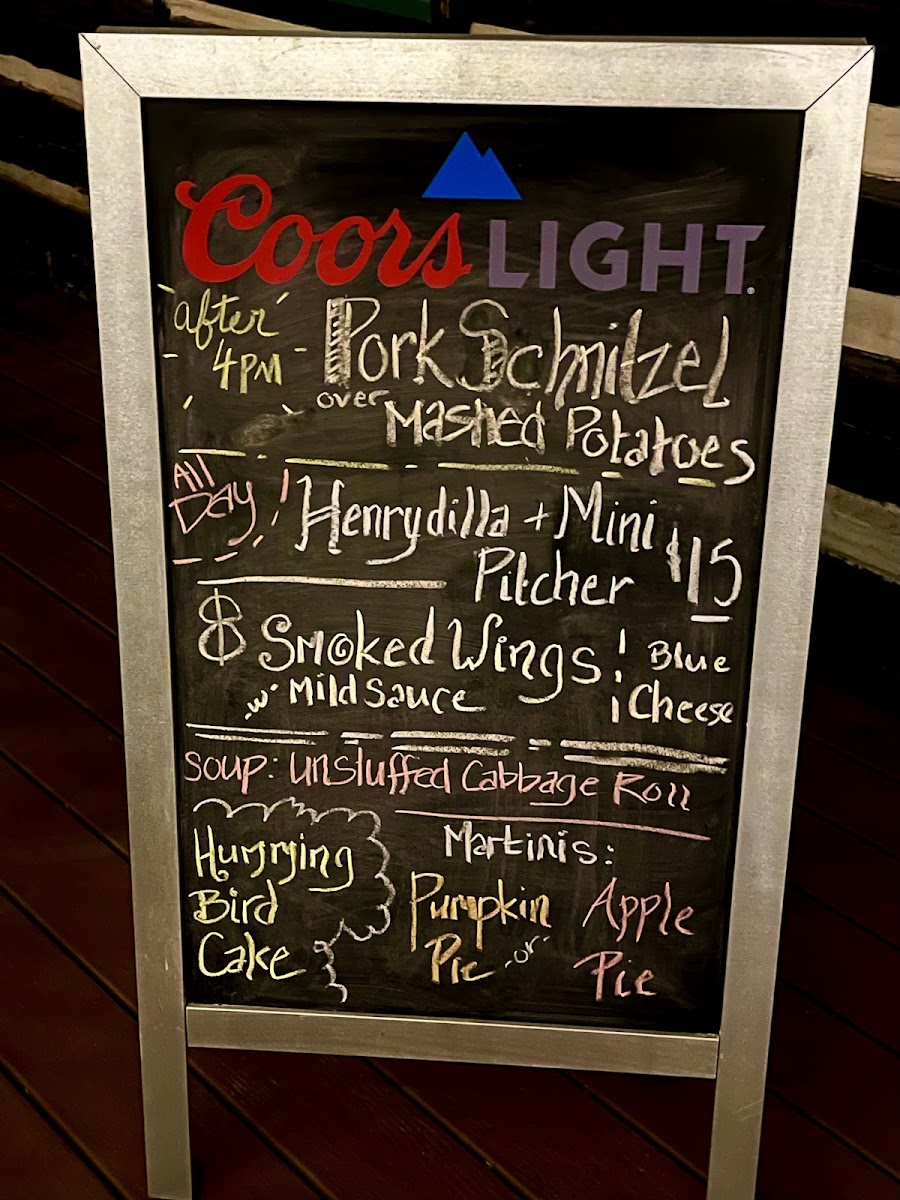 Coors LIGHT
after 4PM
Pork Schnitzel
over Mashed Potatoes
All Day!
Henrydilla + Mini
Pitcher $15
8 Smoked Wings! Blue
w/ Mild Sauce ¡ Cheese
Soup: Unstuffed Cabbage Roll
Humming
Bird
Cake
Martinis:
Pumpkin Pie -or- Apple Pie